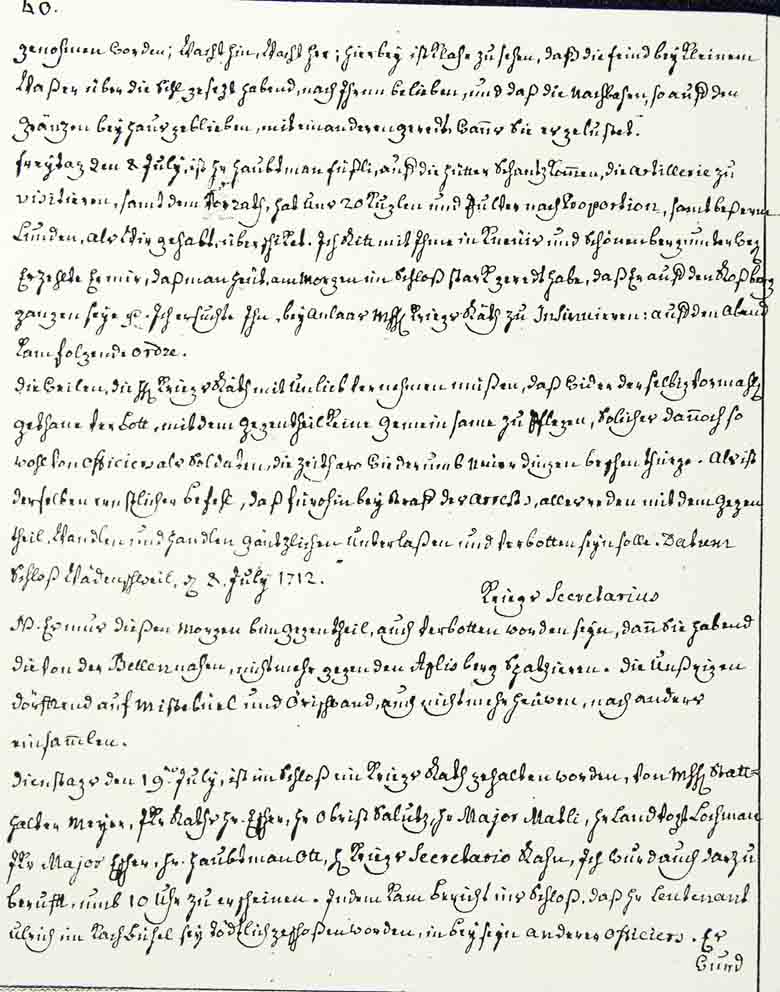 40.
genohmen worden; Macht hin, Macht her; hierbey ist klahr zu sehen, daß die feind bey kleinem
Waßer über die Sihl gesezt habend, nach Ihrem belieben, und daß die Nachbahren, so auf den
Gränzen bey haus geblieben, mit einanderen geredt, wann Sie es gelüstet.
freytag den 8 July, ist Hr haubtman füßli, auf die hütten Schantz kommen, die artillerie zu
visitieren, samt dem Vorrath, hat uns 20 Kuglen und Pulver nach Proportion, samt beßeren
Lunden, als wir gehabt, überschikt. Ich Ritt mit Ihme in und Schönenberg, unterwegs
Erzehlte Er mir, daß man heüt am Morgen im Schloß stark geredt habe, daß Er auf den Roßberg
gangen seye. Ich ersuchte Ihn, bey anlaas MhH Kriegs Räth zu Insinuieren: auf den Abend
kam folgende ordre.
die Weilen, die HH Kriegs Räth mit Unlieb vernehmen müßen, daß wider derselbig vormahl
gethane Verbott, mit dem Gegentheil keine gemeinsame zu Pflegen, Solches dannoch so
wohl von Officiers als Soldaten, die zeitharo widerumb beschen thüege. Als ist
derselben ernstlicher befehl, daß fürohin bey straf des arrests, alles reden mit dem Gegen
theil, Wandlen und handlen gäntzlichen Unterlaßen und verbotten seyn solle. Datum
Schloß Wädenschweil, 8. July 1712.
Kriegs Secretarius
N. Es mus dießen Morgen bim gegentheil, auch verbotten worden seyn, dann Sie habend
die von der Bellen nahen, nicht mehr gegen den Aplisberg Spatzieren. die Unßrigen
dörfftend auf Mistebüel und, auch nicht mehr heüwen, noch anders
einsamlen.
Dienstags den 19.ten July, ist im Schloß ein Kriegs Rath gehalten worden, von MhH Statt=
halter Meyer, Jkr Rathshr. Escher, Hr Obrist Salutz, Hr Major Matli, Hr Landvogt Lochman
Jkr Major Escher, Hr. haubtman Ott, H Kriegs Secretario Rahn, Ich wurd auch darzu
berufft, umb 10 Uhr zu erscheinen. Indem kam bericht ins Schloß, daß Hr Leutenant
Ulrich im Bühel sey tödtlich geschoßen worden, in beyseyn anderer officiers. Es
wurd